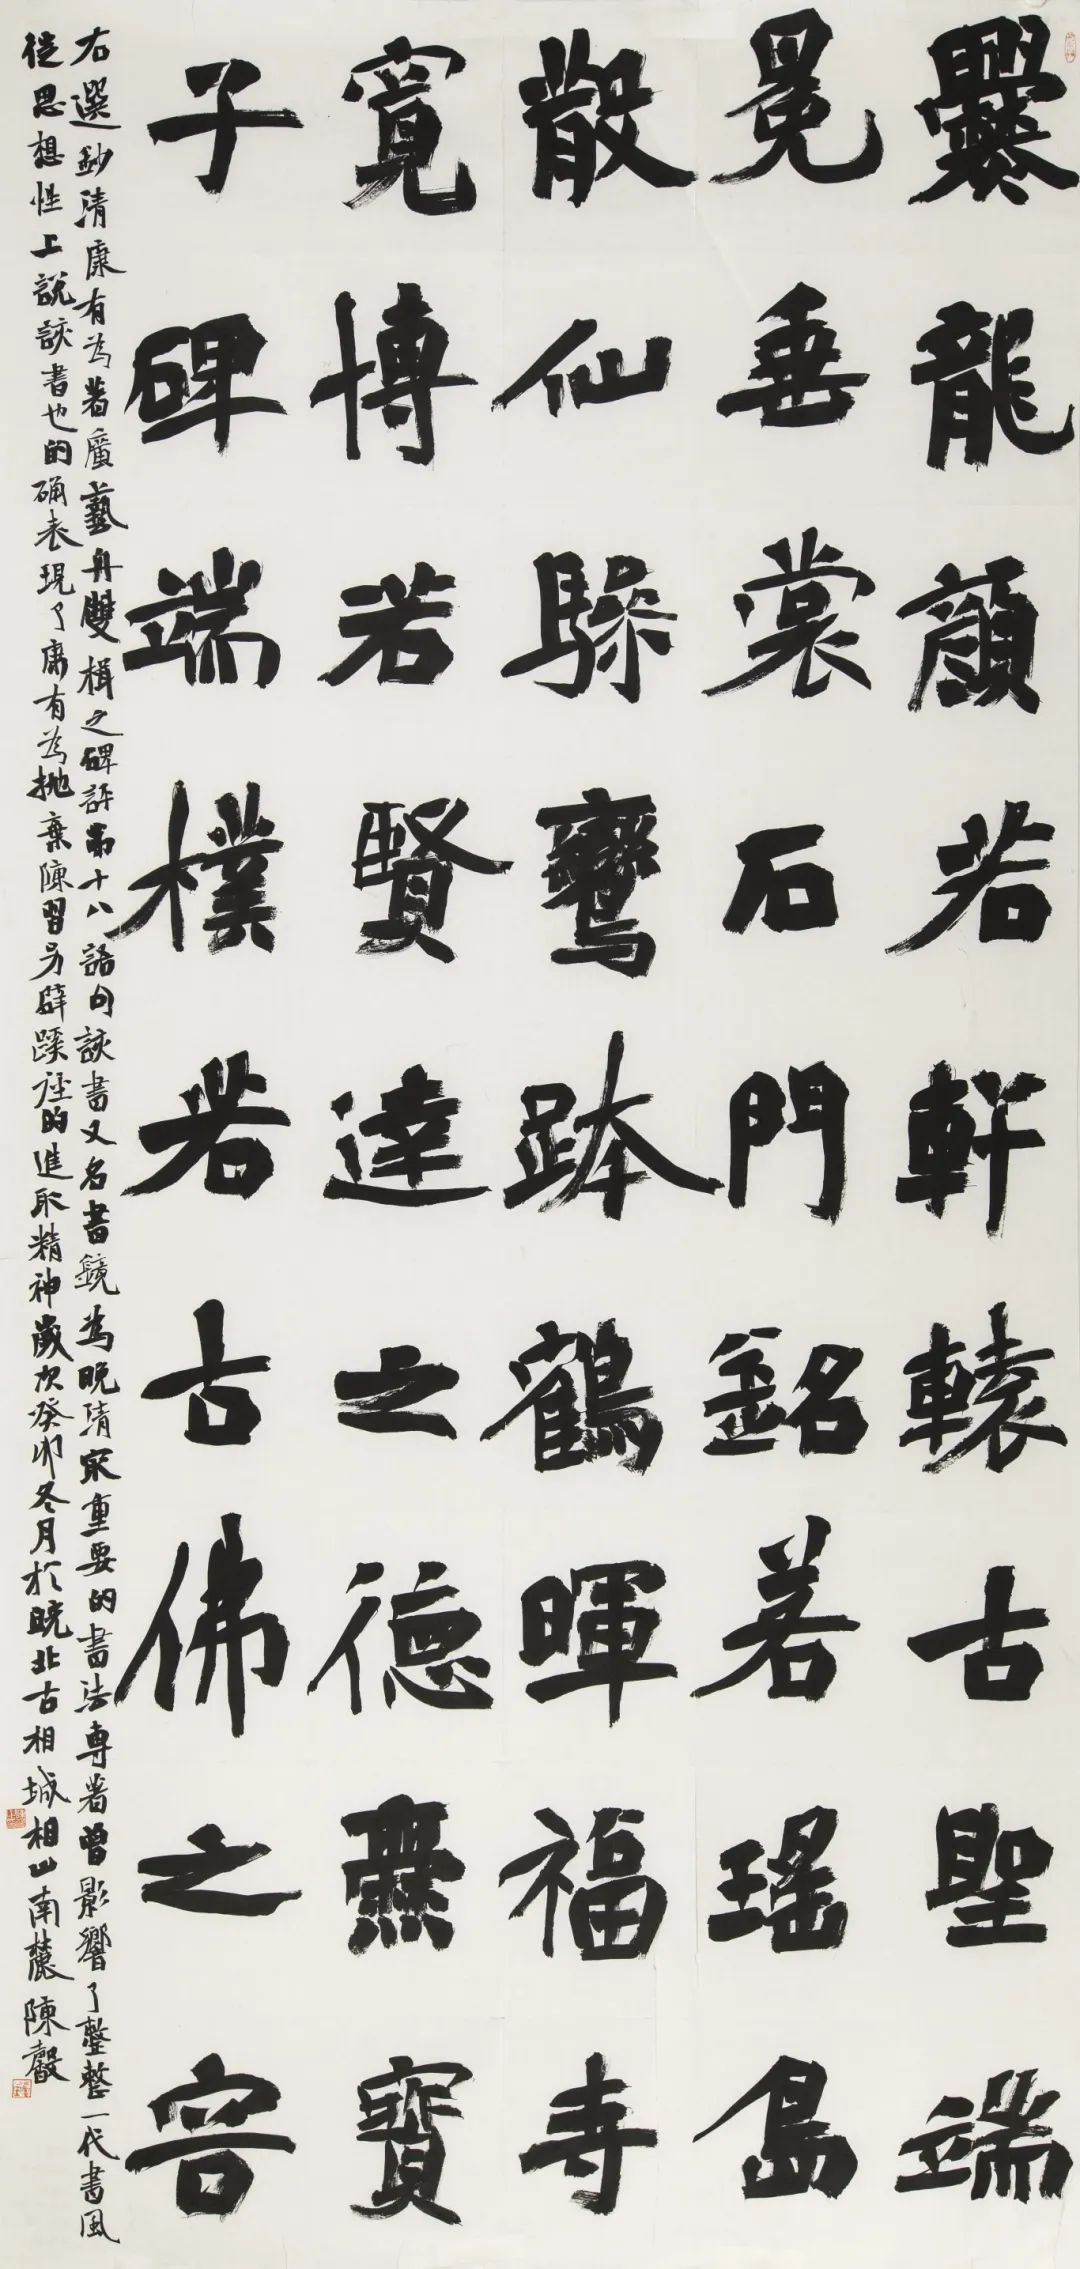 爨龍顔若軒轅古聖端
冕垂裳石門銘若瑤島
散仙驂鸞跨鶴暉福寺
寬博若賢達之德爨寶
子碑端樸若古佛之容
右選鈔清康有為著廣藝舟雙楫之碑評第十八語句該書又名書鏡為晚清最重要的書法專著曾影響了整整一代書風
從思想性上說該書也的确表現了康有為抛棄陳習另辟蹊徑的進取精神歲次癸卯冬月於皖北古相城相山南麓陳